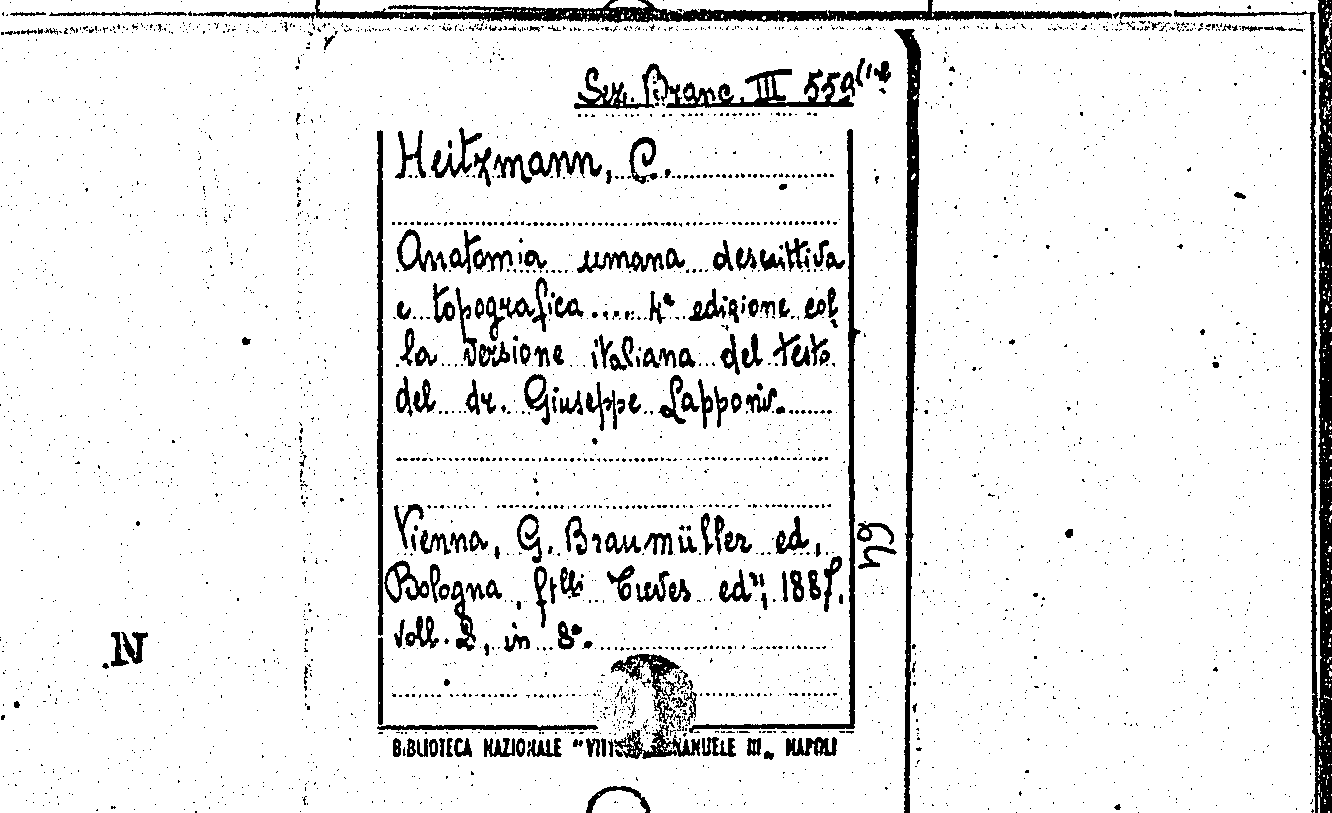 Sez. Branc. III 559
Heitzmann, C.
Anatomia umana descrittiva
e topografica .... 4ª edizione col
la versione italiana del testo
del dr. Giuseppe Lapponi.
Vienna, G. Braumüller ed,
Bologna, ftlli Treves edri, 1887.
voll. 2, in 8º.
BIBLIOTECA NAZIONALE " III„ NAPOLI
N